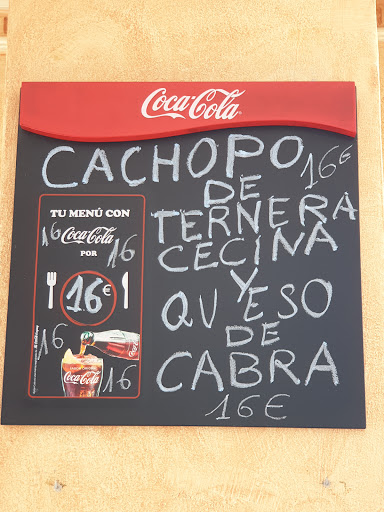 Coca-Cola
CACHOPO 16€
DE
TERNERA
CECINA
Y
QUESO
DE
CABRA
16€
TU MENÚ CON
16 Coca-Cola 16
POR
16€
16
16
SABOR ORIGINAL
Coca-Cola